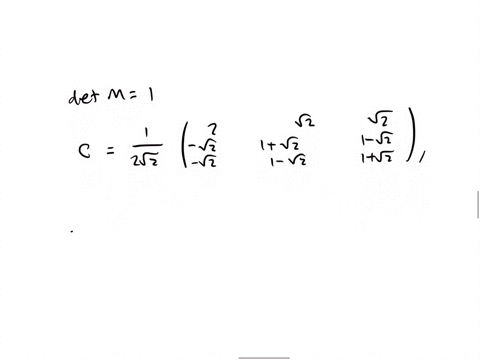 det M = 1
C = 1/(2√2) ( 2 √2 √2
-√2 1+√2 1-√2
-√2 1-√2 1+√2 ),